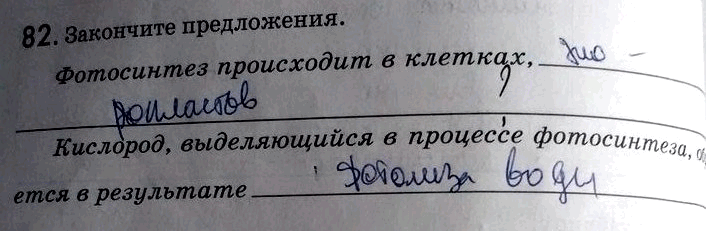 82. Закончите предложения.
Фотосинтез происходит в клетках, хло-
ропластов
Кислород, выделяющийся в процессе фотосинтеза,
ется в результате фотолиза воды